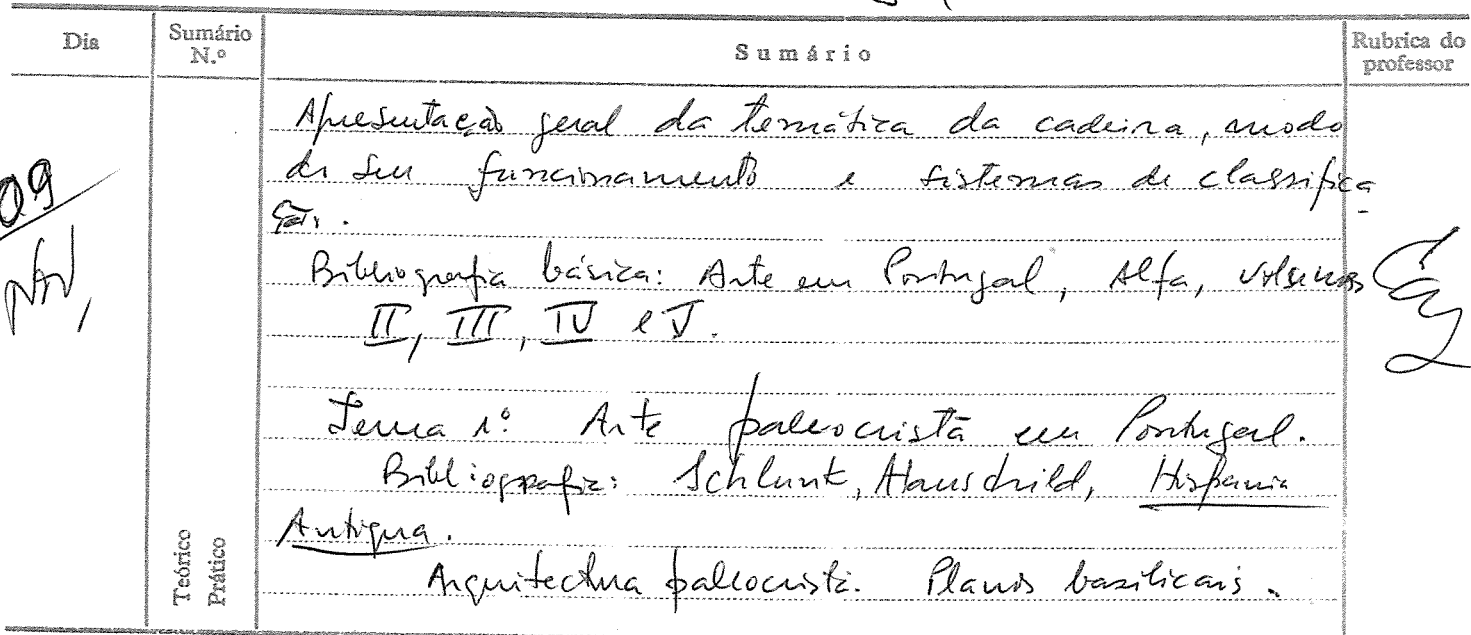 Dia Sumário N.º Sumário Rubrica do professor
09
Nov,
Apresentação geral da temática da cadeira, modo
de seu funcionamento e sistemas de classifica
ção.
Bibliografia básica: Arte em Portugal, Alfa, volumes
II, III, IV e V.
Tema 1º: Arte paleocristã em Portugal.
Bibliografia: Schlunk, Hauschild, Hispania
Antiqua.
Arquitectura paleocristã. Planos basilicais.
Teórico
Prático